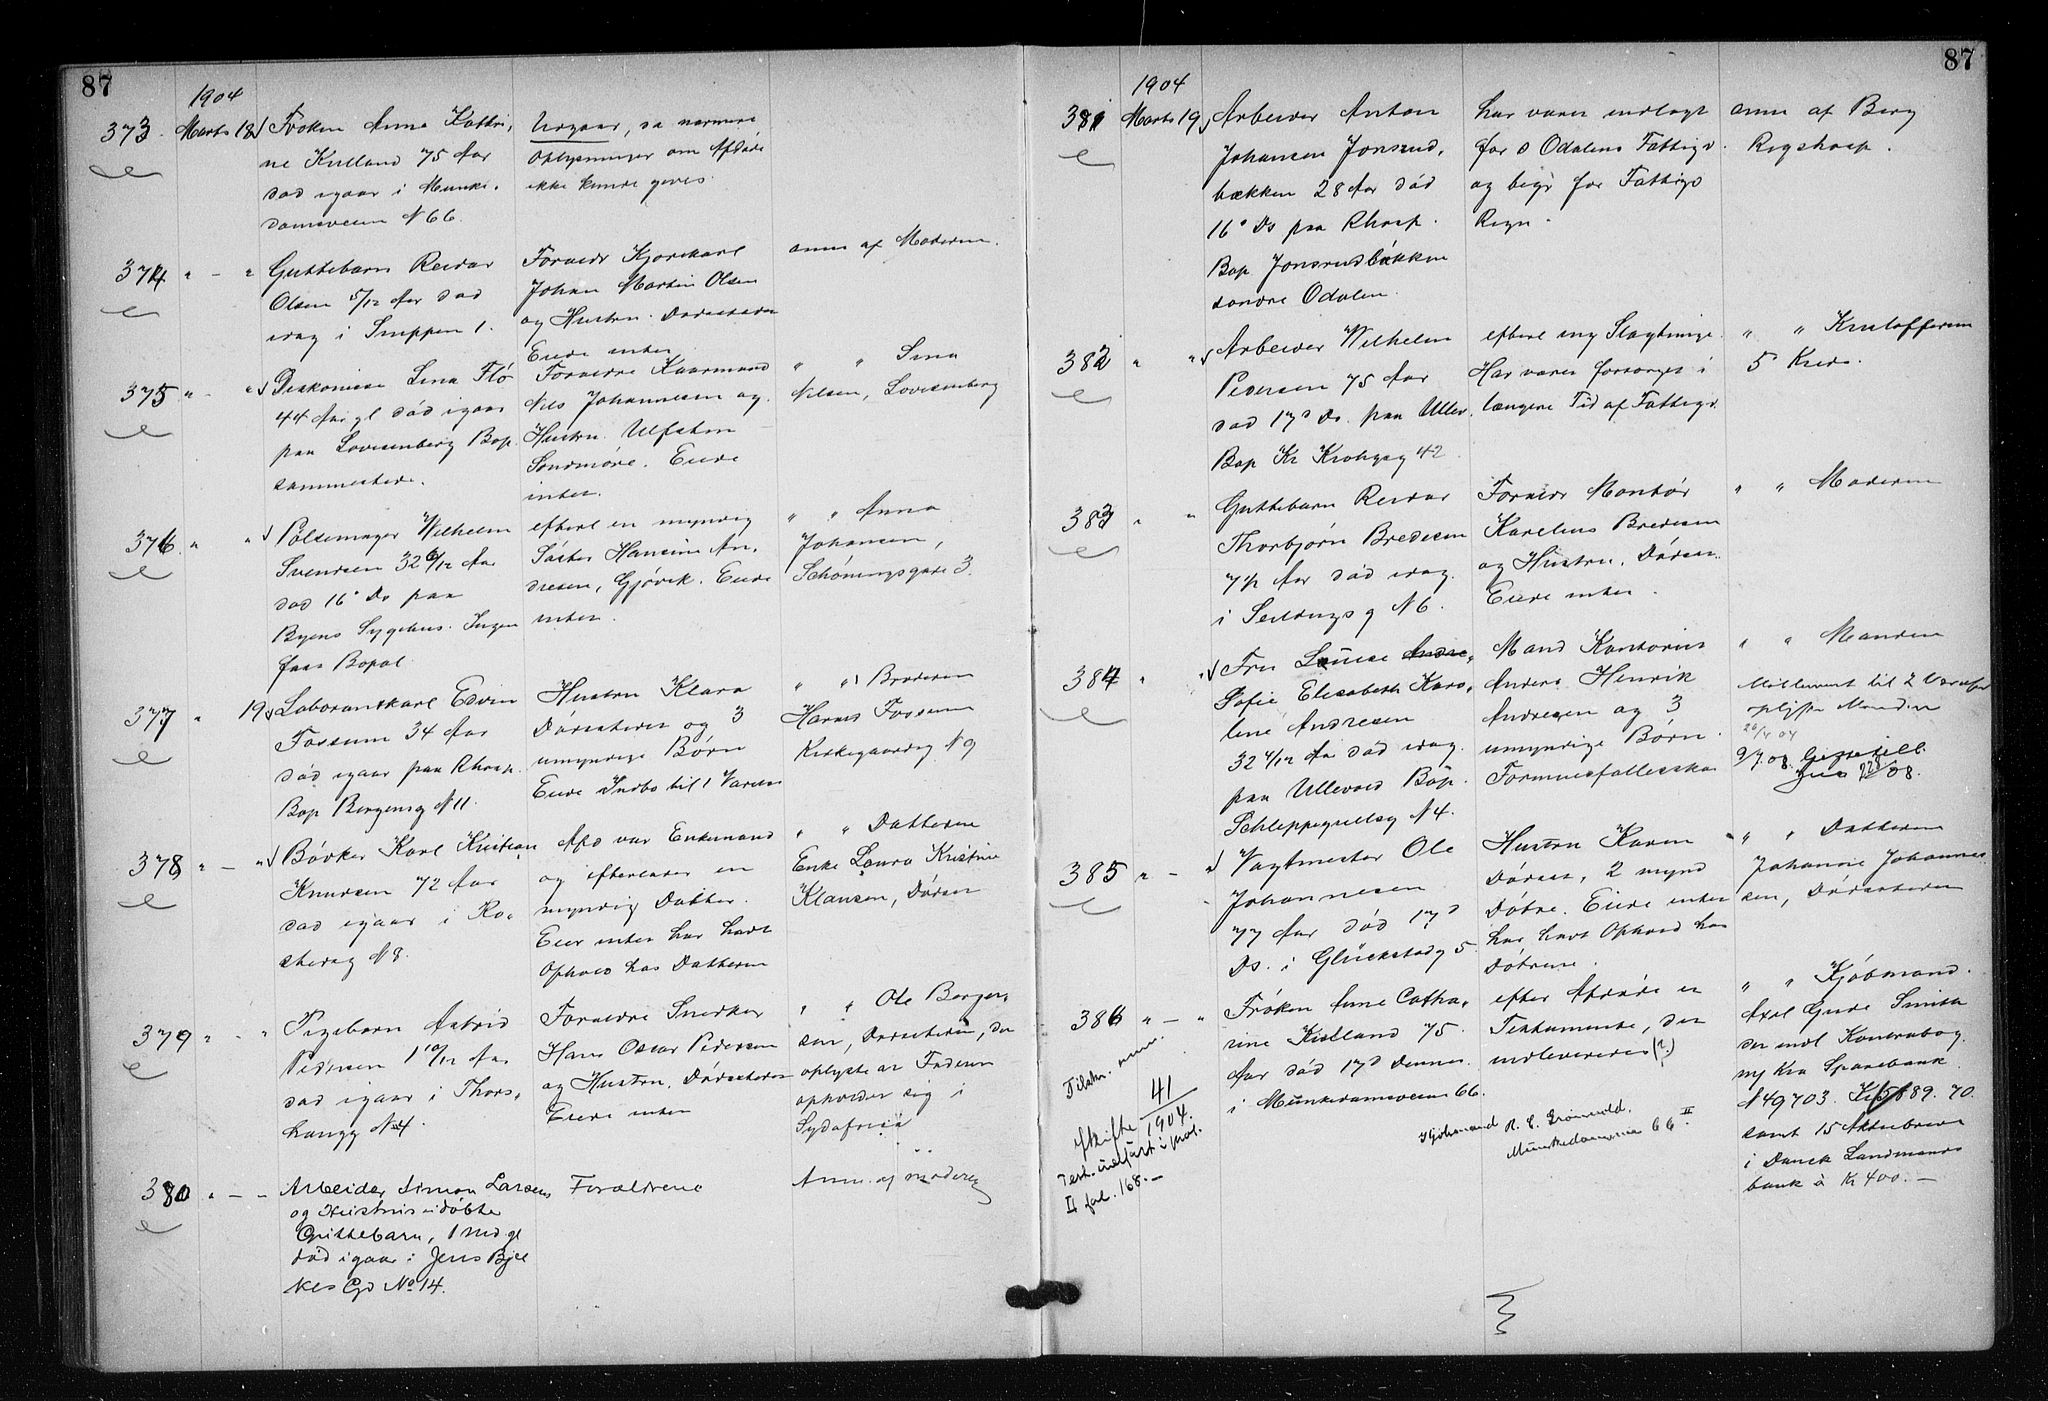 87
1904
373. Marts 18 Frøken Anna Kathri,
ne Kielland 75 Aar
død igaar i Munke,
damsveien N 66.
Udgaar, da nærmere
Oplysninger om Afdøde
ikke kunde gives.
374 " - " Guttebarn Reidar
Olsen 5/12 Aar død
idag i Snippen 1.
Forældr Kjørekarl
Johan Martin Olsen
og Hustru. Dødsstedet
Eiede intet
anm af Moderen.
375 " - " Diakonisse Lina Flø
44 Aar gl død igaar
paa Lovisenberg Bop.
sammesteds.
Forældre Gaardmand
Nils Johannesen og
Hustru. Ulfsten
Søndmøre. Eiede
intet.
" " Lina
Nilsen, Lovisenberg
376. " " Pølsemager Wilhelm
Svendsen 32 6/12 Aar
død 16° Ds paa
Byens Sygehus. Ingen
fast Bopæl.
efterl en myndig
Søster Hansine An,
dresen, Gjøvik. Eiede
intet.
" " Anna
Johansen,
Schøningsgade 3.
377 " 19 Laborantkarl Edvin
Fossum 34 Aar
død igaar paa Rhosp.
Bop Bergensg N 11.
Hustru Klara
Dødsstedet og 3
umyndige Børn
Eiede Indbo til 1 Værelse
" " Broderen
Harald Fossum
Kirkegaardsg N 9
378 " - " Bødker Karl Kristian
Knudsen 72 Aar
død igaar i Ro,
sterug N 8.
Afd var Enkemand
og efterlader en
myndig Datter.
Eier intet har havt
Ophold hos Datteren
" " Datteren
Enke Laura Kristine
Klausen, Dødsst
379 " - " Pigebarn Astrid
Pedersen 1 10/12 Aar
død igaar i Thors,
haugg N 4.
Forældre Snedker
Hans Oscar Pedersen
og Hustru, Dødsstedet
Eiede intet
" " Ole Berger,
sen, Dødsstedet, der
oplyste at Faderen
opholder sig i
Sydafrica
380 " - - Arbeider Simon Larsens
og Hustrus udøbte
Guttebarn, 1 Md gl
død igaar i Jens Bjel
kes Gd No 14.
Forældrene
Anm. af moderen
87
1904
381 Marts 19 Arbeider Anton
Johansen Jonsrud,
bækken 28 Aar død
16° Ds paa Rhosp.
Bop Jonsrudbækken
søndre Odalen.
har været indlagt
for S Odalens Fattigv.
og begr for Fattigv
Regn.
anm af Berg
Rigshosp.
382 " " Arbeider Wilhelm
Pedersen 75 Aar
død 17d Ds. paa Ullev.
Bop Kr Krohgsg 42.
efterl ing Slægtninge.
Har været forsørget i
længere Tid af Fattigv.
" " Kristoffersen
5 Kreds.
383 " " Guttebarn Reidar
Thorbjørn Bredesen
7 1/2 Aar død idag
i Seildugsg N 6.
Forældr Montør
Karelius Bredesen
og Hustru, Dødsst.
Eiede intet.
" " Moderen
384 " " Fru Louise Andre,
Sofie Elisabeth Karo,
line Andresen
32 4/12 Aar død idag
paa Ullevold Bop.
Schleppegrellsg N 4.
Mand Kontorist
Anders Henrik
Andresen og 3
umyndige Børn.
Formuesfællesska
" " Manden
Møblement til 2 Værelser
oplyste Manden
26/4 04
385 " - " Vagtmester Ole
Johannesen
77 Aar død 17d
Ds. i Glückstadg 5
Hustru Karen
Dødsst, 2 mynd
Døtre. Eiede intet
har havt Ophold hos
Døtrene.
" " Datteren
Johanne Johannes
sen, Dødsstedet
386 " - " Frøken Anne Catha,
rine Kielland 75.
Aar død 17d Dennes.
i Munkedamsveien 66.
efter Afdøde er
Testamente, der
indleveredes (?)
Kjøbmand R. E. Grønvold.
Munkedamsveien 66 II
" " Kjøbmand.
Axel Gude Smith
der indl Kontrabog
ny Kra Sparebank
N 49703. Kr 5889.70.
samt 15 Aktiebreve
i Dansk Landmands
bank à Kr 400.-
Tilstr. anm.
Skifte 41/1904.
Test. indført i prot.
II fol. 168.-